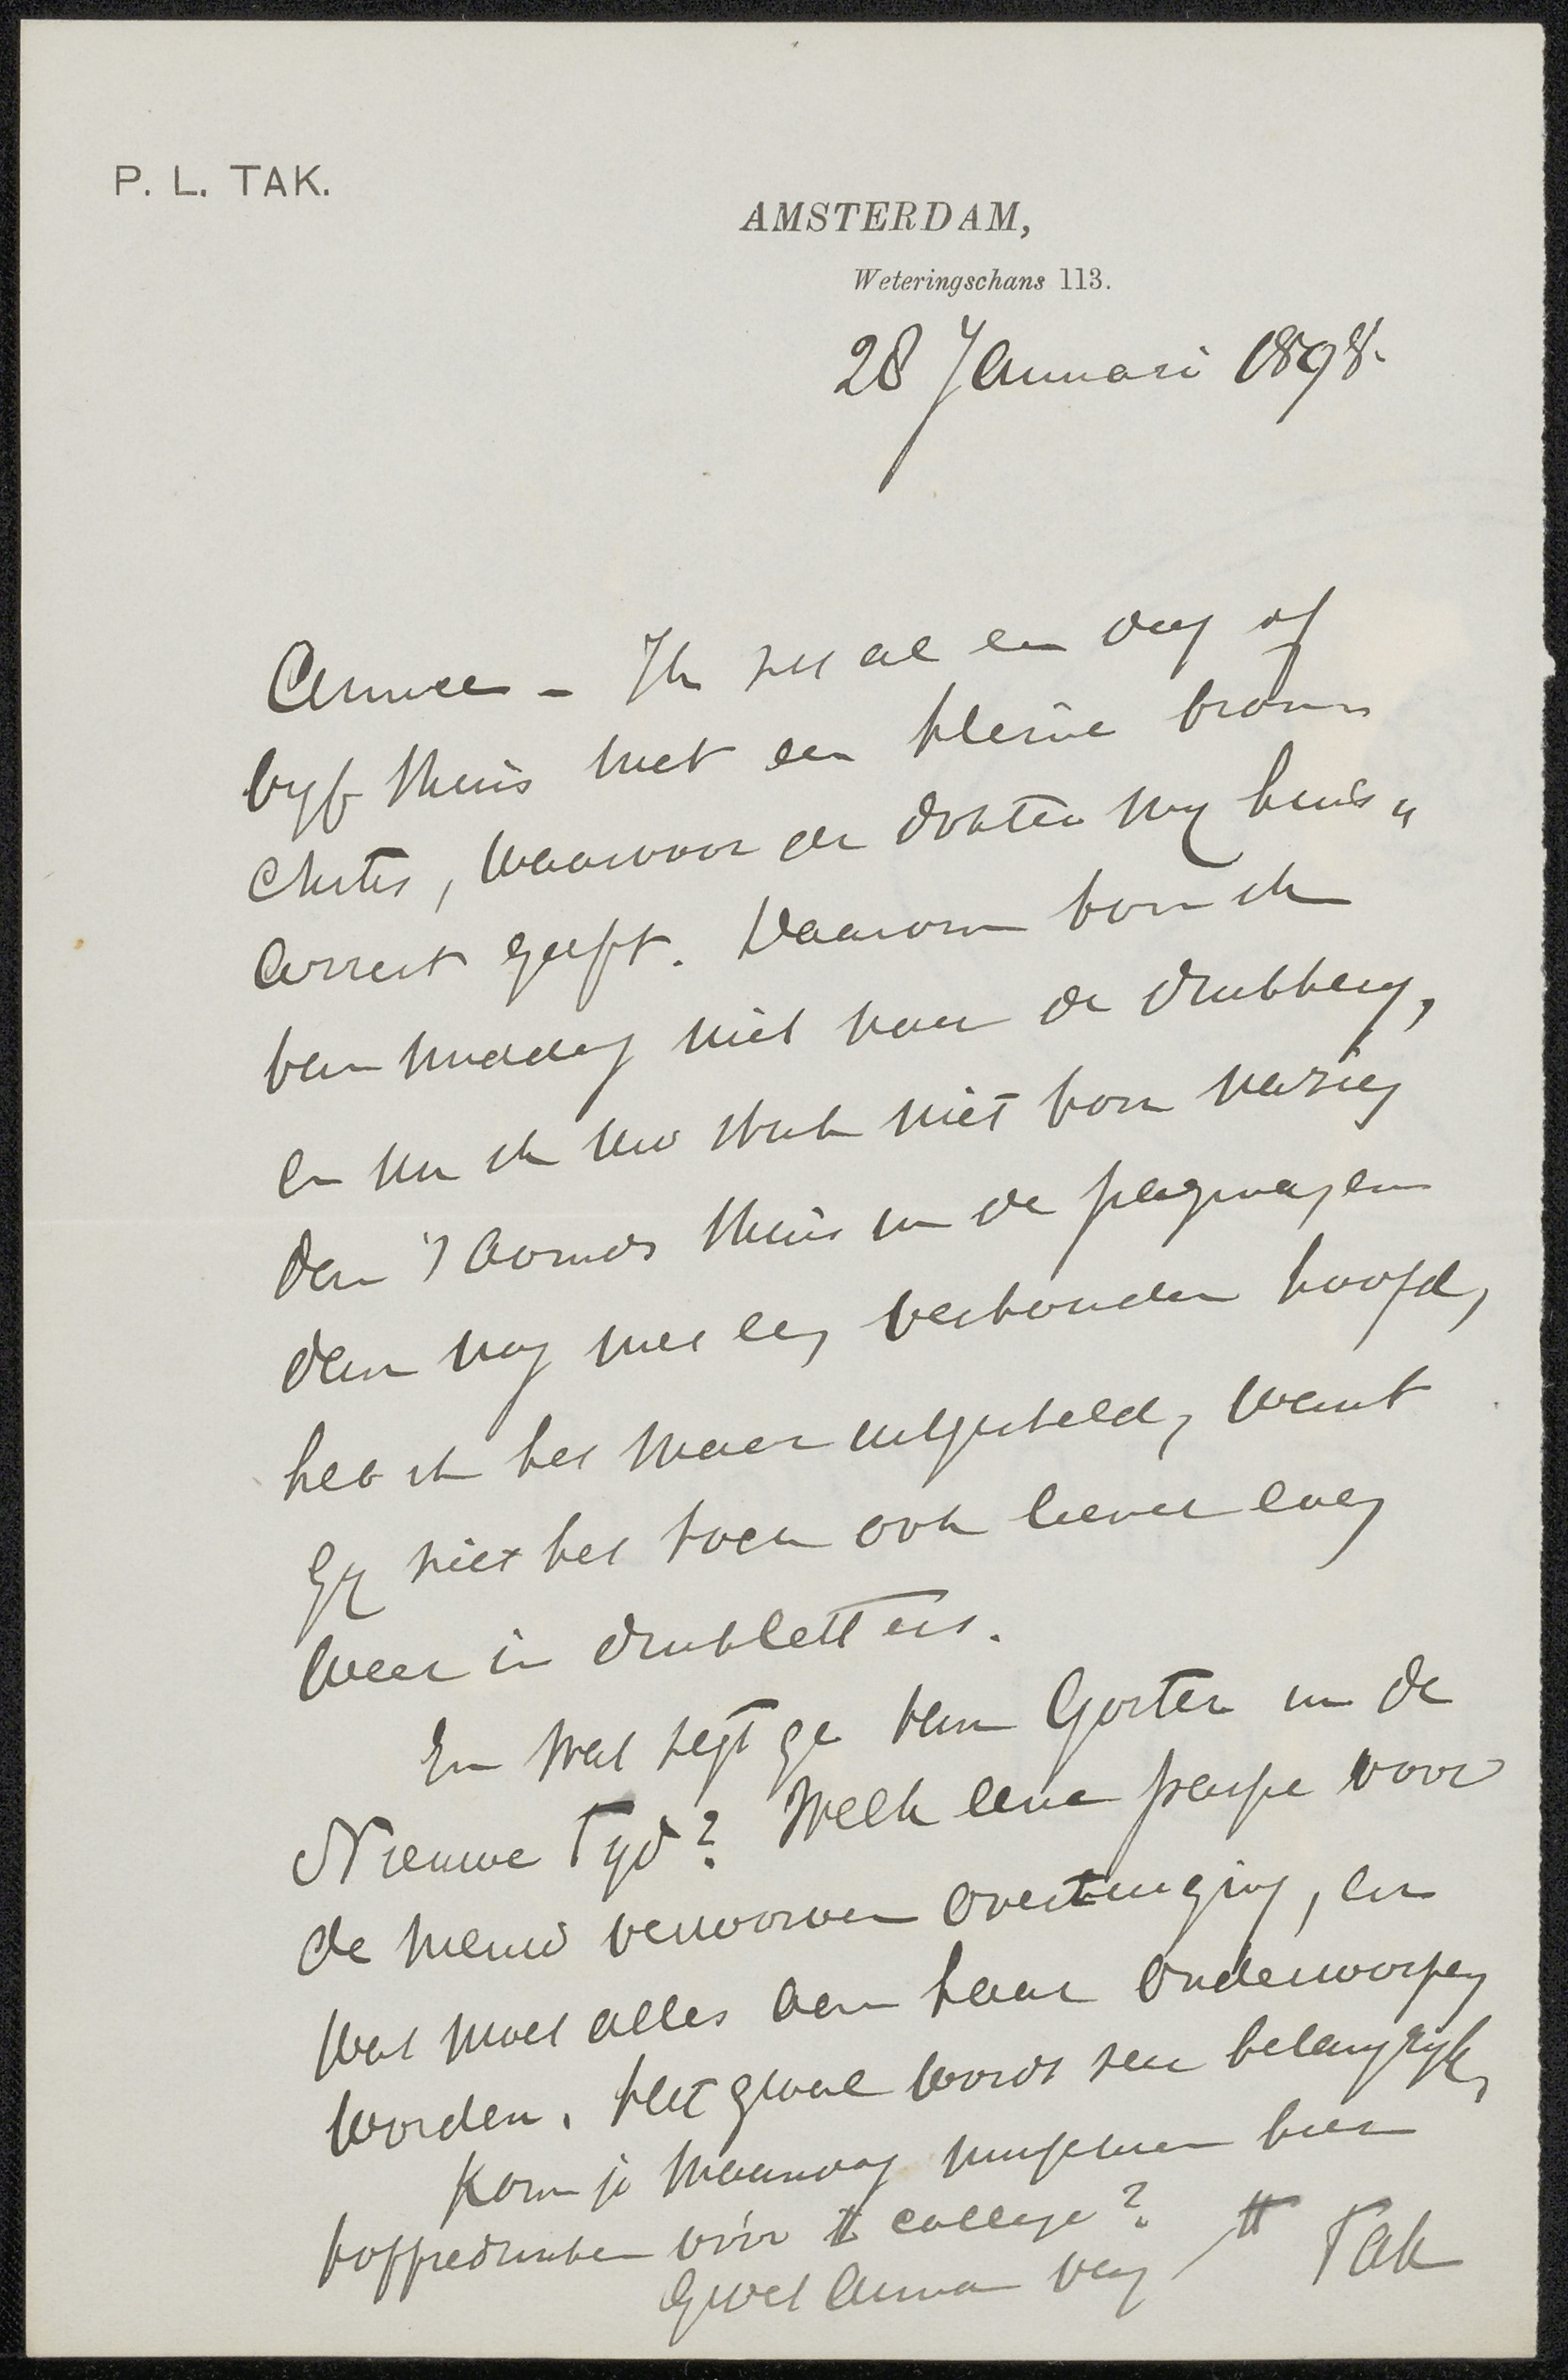 P. L. TAK.
AMSTERDAM,
Weteringschans 113.
28 Januari 1898.
Amice - Ik zit al een dag of
vyf thuis met een kleine bron-
chitis, waarvoor de dokter my huis„
arrest geeft. Daarom kon ik
van middag niet naar de drukkery,
en nu ik uw stuk niet kon nazien
dan 's avonds thuis in de
dan nog met een verbonden hoofd,
heb ik het maar uitgesteld, want
Gy ziet het toch ook liever eens
weer in drukletters.
En wat zegt ge van Gorter in de
Nieuwe Tyd? Welk eene passie voor
de nieuw verworven overtuiging, en
wat moet alles aan haar onderworpen
worden. Het geval wordt zeer belangryk,
Kom je Maandag misschien hier
koffiedrinken vóór 't college?
Groet Anna van tt Tak